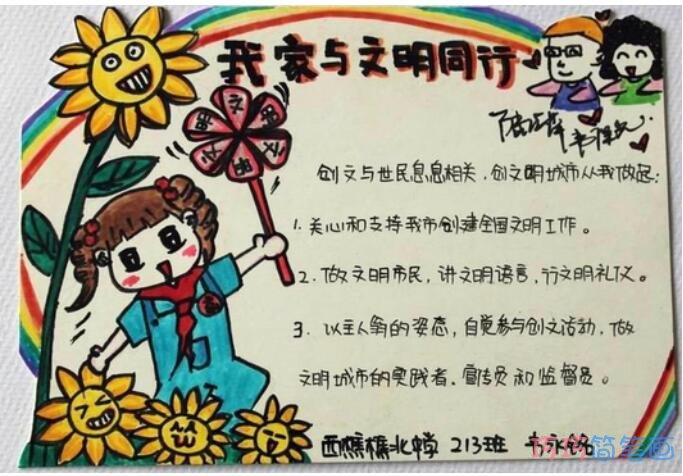 我家与文明同行
文明
文明
文明
创文与世民息息相关，创文明城市从我做起：
1. 关心和支持我市创建全国文明工作。
2. 做文明市民，讲文明语言，行文明礼仪。
3. 以主人翁的姿态，自觉参与创文活动，做
文明城市的实践者、宣传员和监督员。
西樵樵北中学 213班
简笔画